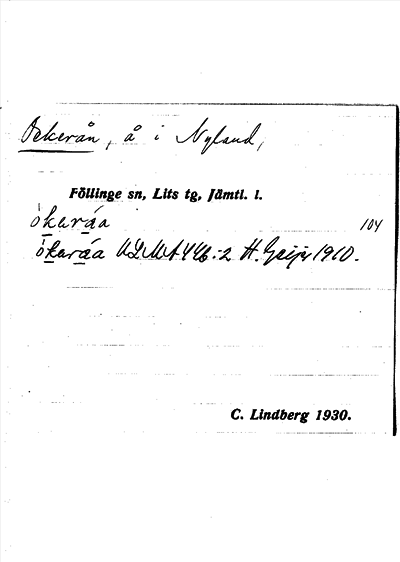 Oekerån, å i Nyland,
Föllinge sn, Lits tg, Jämtl. l.
òkaráa 104
òkaráa ULMA 446:2 H. Geijer 1910.
C. Lindberg 1930.